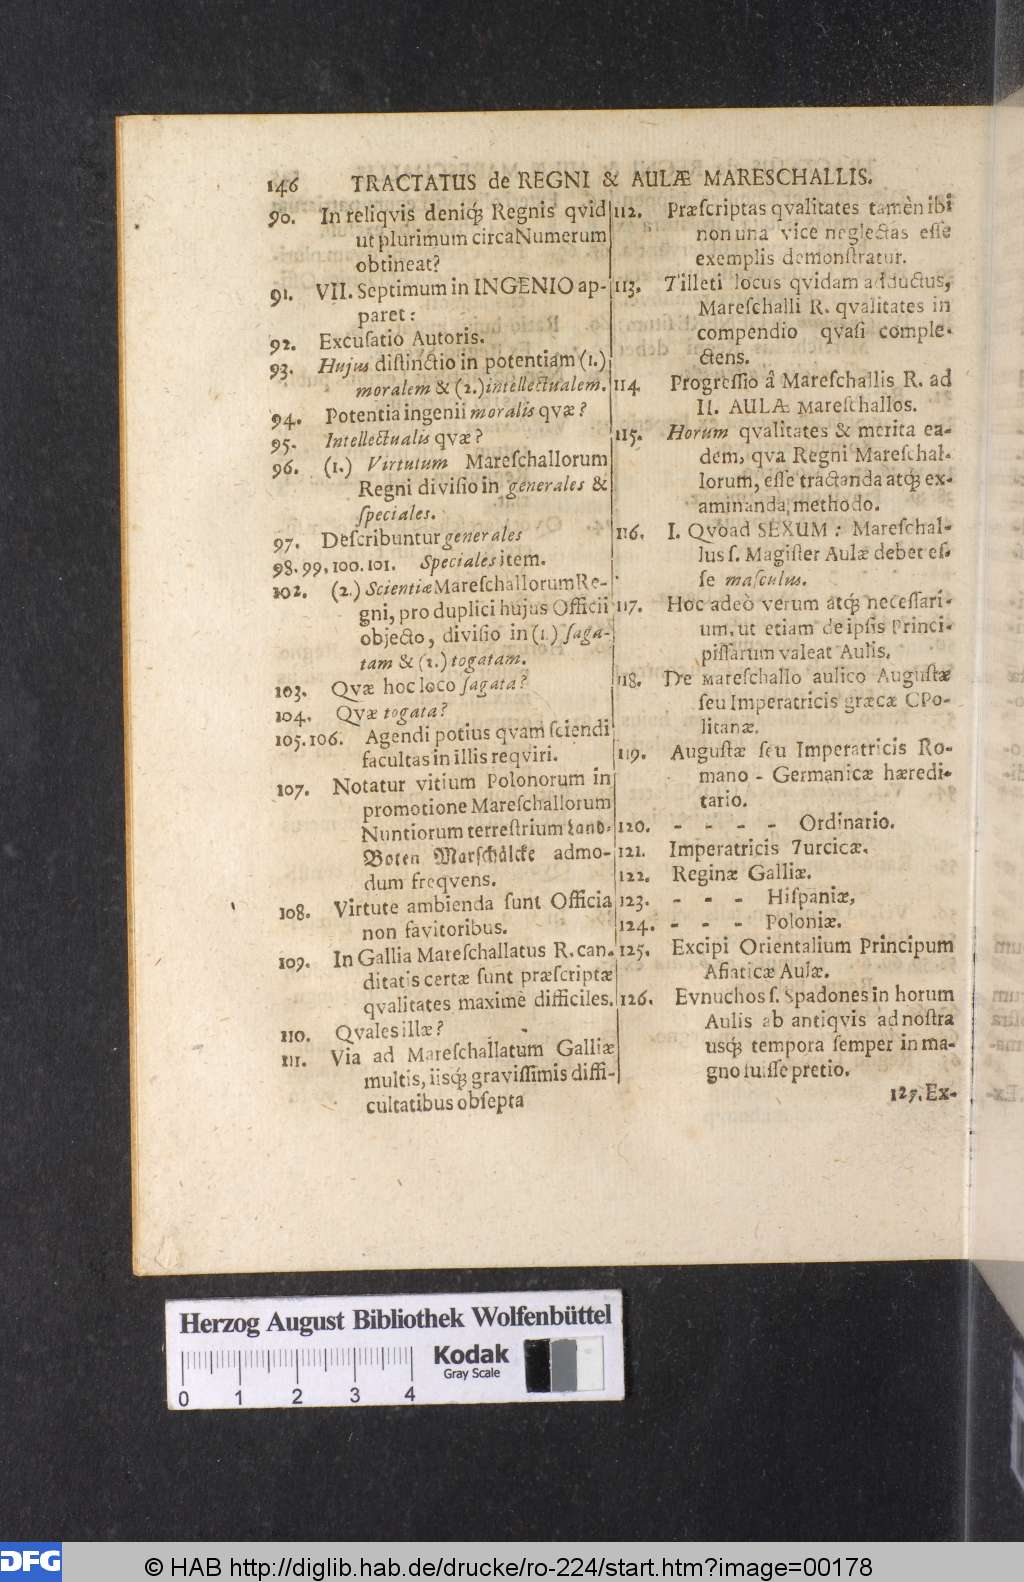 146 TRACTATUS de REGNI & AULÆ MARESCHALLIS.
90. In reliqvis deniq́; Regnis qvid
ut plurimum circa Numerum
obtineat?
91. VII. Septimum in INGENIO ap-
paret:
92. Excusatio Autoris.
93. Hujus distinctio in potentiam (1.)
moralem & (2.) intellectualem.
94. Potentia ingenii moralis qvæ?
95. Intellectualis qvæ?
96. (1.) Virtutum Mareſchallorum
Regni diviſio in generales &
ſpeciales.
97. Deſcribuntur generales
98. 99, 100. 101. Speciales item.
102. (2.) Scientiæ Mareſchallorum Re-
gni, pro duplici hujus Officii
objecto, diviſio in (1.) ſaga-
tam & (2.) togatam.
103. Qvæ hoc loco ſagata?
104. Qvæ togata?
105. 106. Agendi potius qvam ſciendi
facultas in illis reqviri.
107. Notatur vitium Polonorum in
promotione Mareſchallorum
Nuntiorum terreſtrium Land-
Boten Marſchälcke admo-
dum freqvens.
108. Virtute ambienda ſunt Officia
non favitoribus.
109. In Gallia Mareſchallatus R. can-
ditatis certæ ſunt præſcriptæ
qvalitates maximè difficiles.
110. Qvales illæ?
111. Via ad Mareſchallatum Galliæ
multis, iisq́; graviſſimis diffi-
cultatibus obſepta
112. Præſcriptas qvalitates tamèn ibi
non una vice neglectas eſſe
exemplis demonſtratur.
113. Tilleti locus qvidam adductus,
Mareſchalli R. qvalitates in
compendio qvaſi comple-
ctens.
114. Progreſſio â Mareſchallis R. ad
II. AULÆ Mareſchallos.
115. Horum qvalitates & merita ea-
dem, qva Regni Mareſchal-
lorum, eſſe tractanda atq́; ex-
aminanda, methodo.
116. I. Qvoad SEXUM: Mareſchal-
lus ſ. Magiſter Aulæ debet eſ-
ſe maſculus.
117. Hoc adeò verum atq́; neceſſari-
um, ut etiam de ipſis Princi-
piſſarum valeat Aulis.
118. De Mareſchallo aulico Auguſtæ
ſeu Imperatricis græcæ CPo-
litanæ.
119. Auguſtæ ſeu Imperatricis Ro-
mano - Germanicæ hæredi-
tario.
120. - - - - Ordinario.
121. Imperatricis Turcicæ.
122. Reginæ Galliæ.
123. - - - Hiſpaniæ,
124. - - - Poloniæ.
125. Excipi Orientalium Principum
Aſiaticæ Aulæ.
126. Evnuchos ſ. Spadones in horum
Aulis ab antiqvis ad noſtra
usq́; tempora ſemper in ma-
gno fuiſſe pretio.
127. Ex-
Herzog August Bibliothek Wolfenbüttel
Kodak
Gray Scale
0 1 2 3 4
DFG
© HAB http://diglib.hab.de/drucke/ro-224/start.htm?image=00178